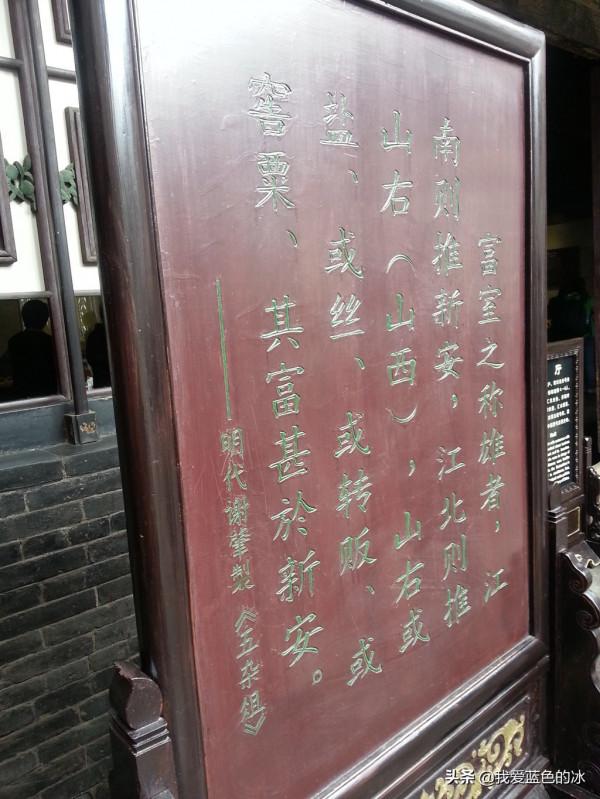 富室之称雄者，江
南则推新安，江北则推
山右（山西），山右或
盐、或丝、或转贩、或
窖粟、其富甚於新安。
——明代谢肇製《五杂俎》
厅
头条 @我爱蓝色的冰